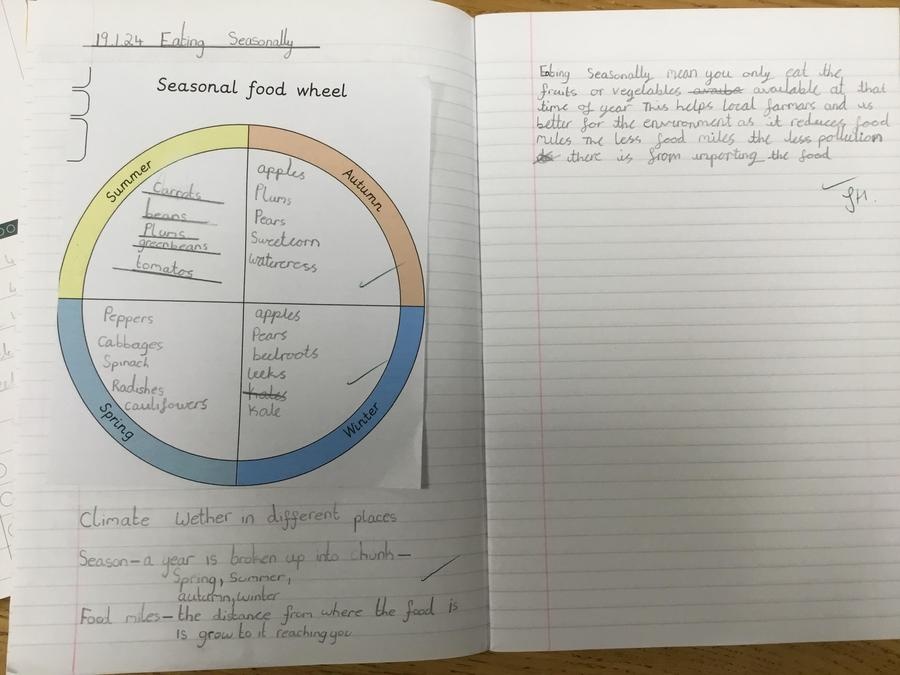 19.1.24 Eating Seasonally
Seasonal food wheel
Summer
Carrots
beans
Plums
greenbeans
tomatos
Autumn
apples
Plums
Pears
Sweetcorn
watercress
Spring
Peppers
Cabbages
Spinach
Radishes
cauliflowers
Winter
apples
Pears
beetroots
leeks
kales
Kale
Climate Wether in different places
Season-a year is broken up into chunk-
Spring, Summer,
autumn, winter
Food miles-the distance from where the food is
is grow to it reaching you
Eating Seasonally mean you only eat the
fruits or vegetables available at that
time of year This helps local farmars and is
better for the environment as it reduces food
miles The less food miles the less pollution
there is from importing the food